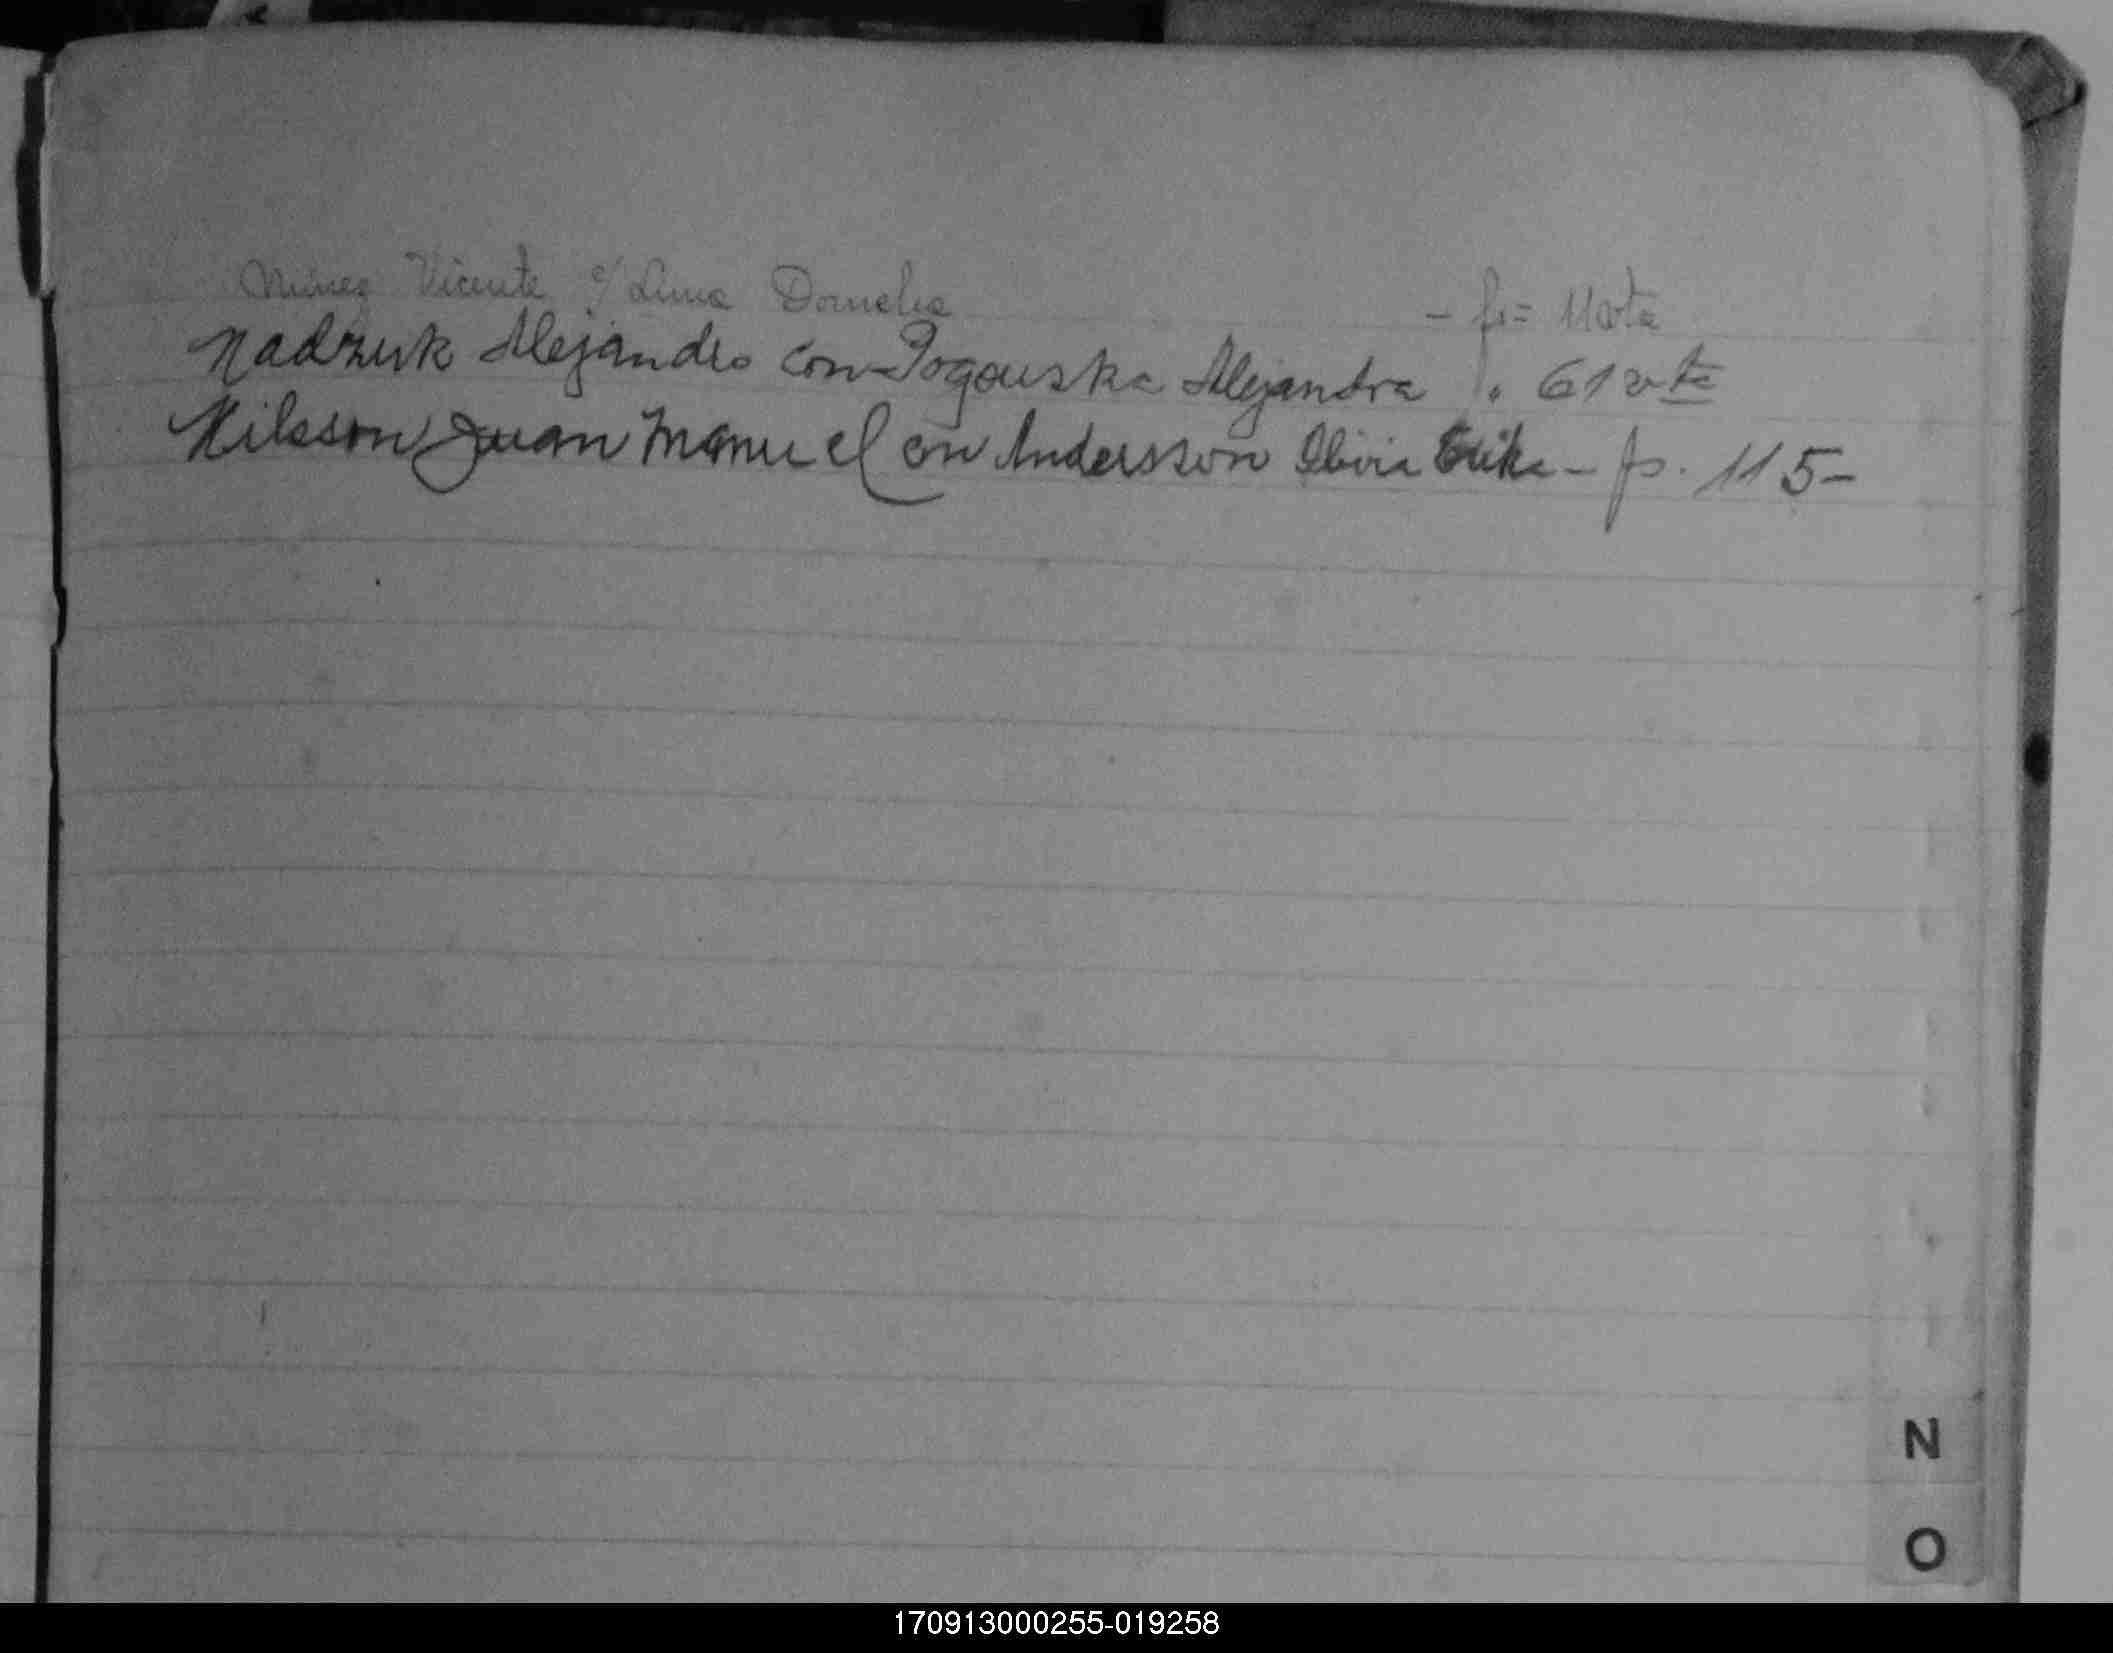 Núñez Vicente c/ Lima Dornelia - fs= 11 vta
Nadzuk Alejandro con Pogouska Alejandra f. 61 vta
Nilsson Juan Manuel con Andersson Olivia Erika - fs. 115-
N
O
170913000255-019258